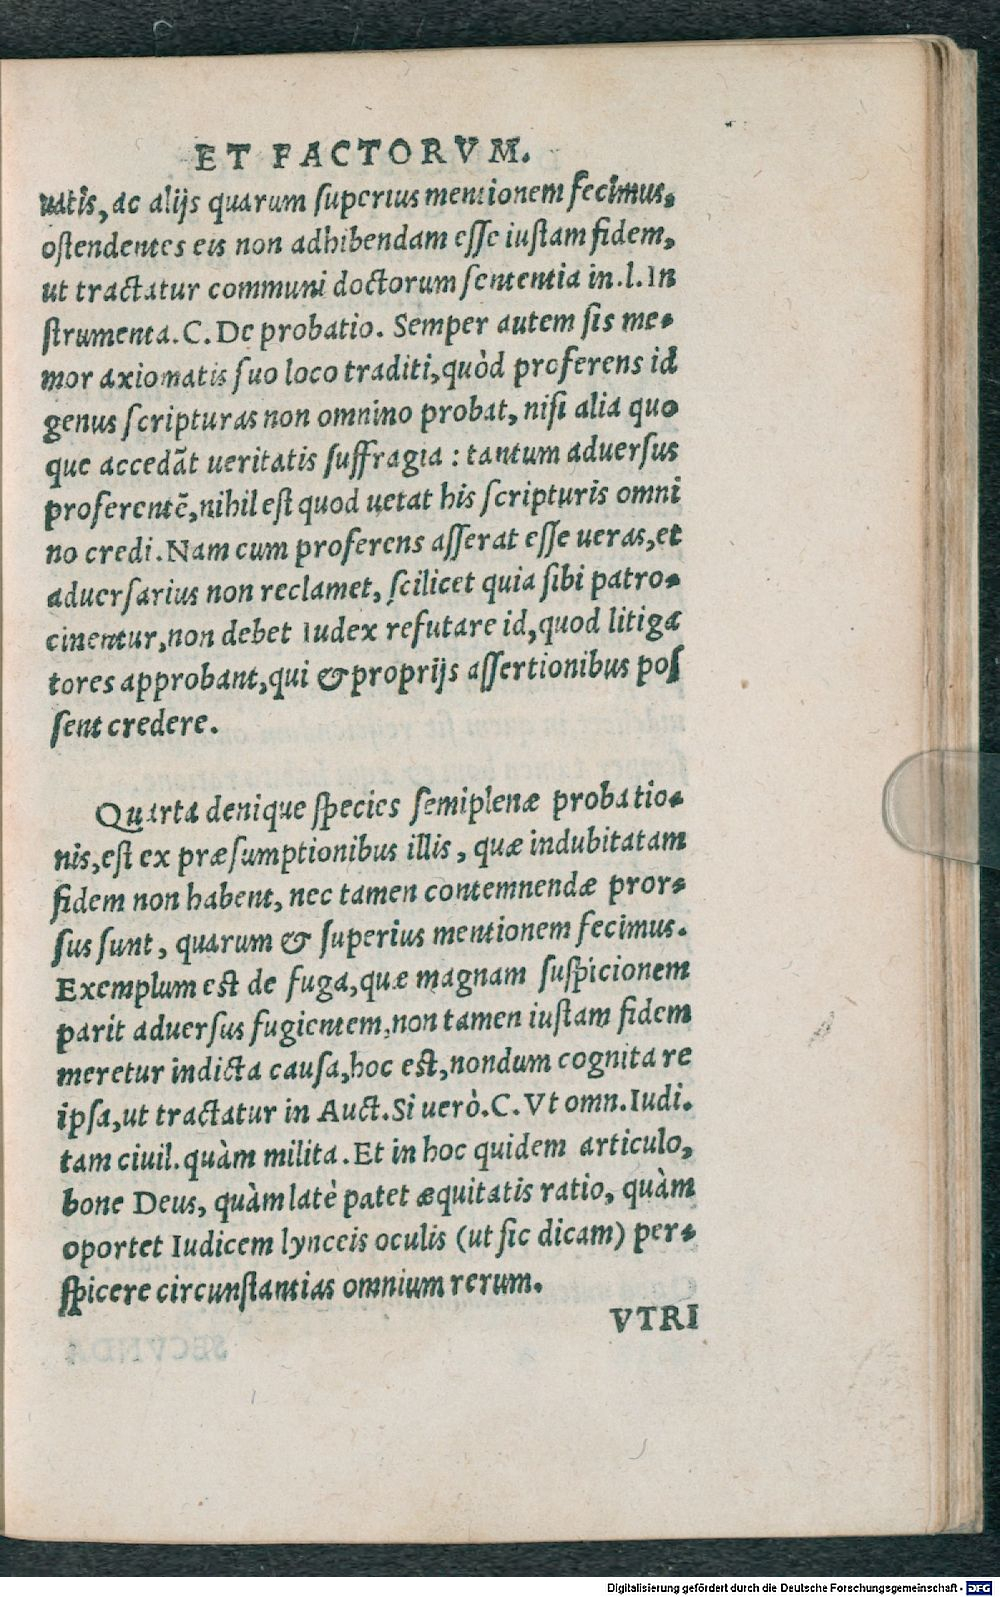 ET FACTORVM.
uatis, ac alijs quarum superius mentionem fecimus,
ostendentes eis non adhibendam esse iustam fidem,
ut tractatur communi doctorum sententia in.l.In
strumenta.C.De probatio. Semper autem sis me-
mor axiomatis suo loco traditi, quòd proferens id
genus scripturas non omnino probat, nisi alia quo
que accedãt ueritatis suffragia : tantum aduersus
proferentẽ, nihil est quod uetat his scripturis omni
no credi. Nam cum proferens asserat esse ueras, et
aduersarius non reclamet, scilicet quia sibi patro-
cinentur, non debet Iudex refutare id, quod litiga
tores approbant, qui & proprijs assertionibus pos
sent credere.
Quarta denique species semiplenæ probatio-
nis, est ex præsumptionibus illis, quæ indubitatam
fidem non habent, nec tamen contemnendæ pror-
sus sunt, quarum & superius mentionem fecimus.
Exemplum est de fuga, quæ magnam suspicionem
parit aduersus fugientem, non tamen iustam fidem
meretur indicta causa, hoc est, nondum cognita re
ipsa, ut tractatur in Auct. Si uerò. C. Vt omn. Iudi.
tam ciuil. quàm milita. Et in hoc quidem articulo,
bone Deus, quàm latè patet æquitatis ratio, quàm
oportet Iudicem lynceis oculis (ut sic dicam) per-
spicere circunstantias omnium rerum.
VTRI
Digitalisierung gefördert durch die Deutsche Forschungsgemeinschaft - DFG